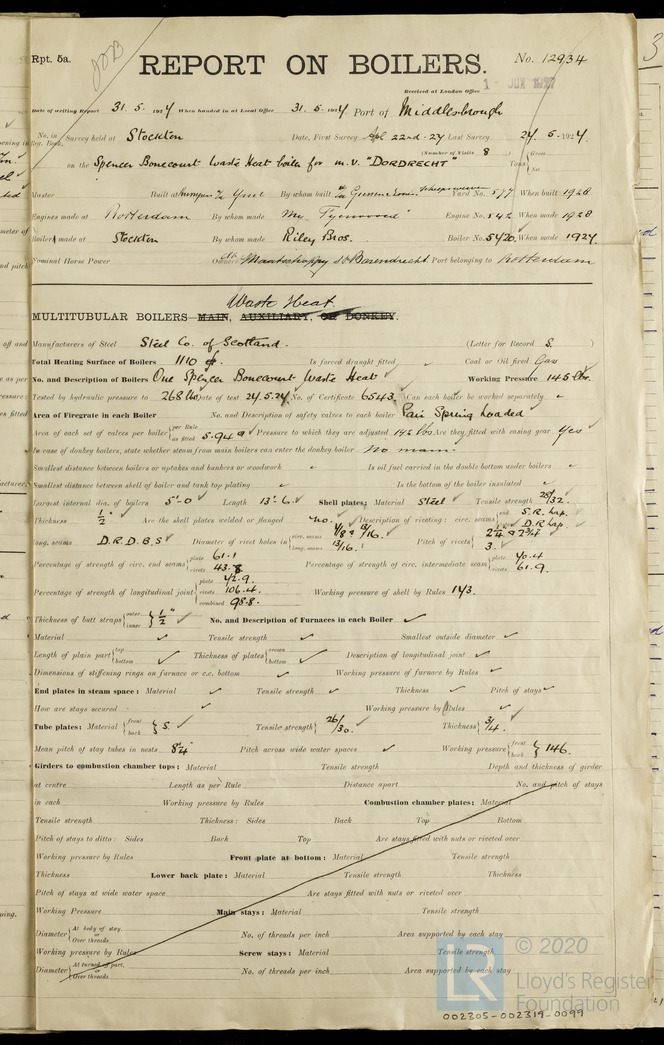 Rpt. 5a.
REPORT ON BOILERS.
No. 12934
Received at London Office
Date of writing Report 31. 5. When handed in at Local Office 31. 5. Port of Middlesbrough
No. in Reg. Book. Survey held at Stockton Date, First Survey 22nd Last Survey
(Number of Visits 8
on the Spencer Bonecourt Waste Heat boiler for m.v. "DORDRECHT" Tons Gross Net
Master Built at By whom built Yard No. 577 When built 1928
Engines made at Rotterdam By whom made Engine No. 542 When made 1928
Boilers made at Stockton By whom made Riley Bros. Boiler No. 5420 When made
Nominal Horse Power Owners Port belonging to Rotterdam
Waste Heat
MULTITUBULAR BOILERS MAIN, AUXILIARY, OR DONKEY.
Manufacturers of Steel Steel Co. of Scotland. (Letter for Record S. )
Total Heating Surface of Boilers 1110 Is forced draught fitted Coal or Oil fired Gas
No. and Description of Boilers One Spencer Bonecourt Waste Heat Working Pressure 145 lbs.
Tested by hydraulic pressure to 268 Date of test 24.5. No. of Certificate 6543 Can each boiler be worked separately
Area of Firegrate in each Boiler No. and Description of safety valves to each boiler Pair Spring Loaded
Area of each set of valves per boiler per Rule as fitted 5.94 Pressure to which they are adjusted lbs Are they fitted with easing gear Yes
In case of donkey boilers, state whether steam from main boilers can enter the donkey boiler No main.
Smallest distance between boilers or uptakes and bunkers or woodwork Is oil fuel carried in the double bottom under boilers
Smallest distance between shell of boiler and tank top plating Is the bottom of the boiler insulated
Largest internal dia. of boilers 5'-0 Length 13'. 6. Shell plates: Material Steel Tensile strength 28/32.
Thickness 1/2" Are the shell plates welded or flanged no. Description of riveting: circ. seams end S.R. Lap. inter. D.R. Lap.
long. seams D.R.D.B.S Diameter of rivet holes in circ. seams long. seams 13/16. Pitch of rivets 3.
Percentage of strength of circ. end seams plate 61.1 rivets 43.8 Percentage of strength of circ. intermediate seam plate 70.4 rivets 61.9.
Percentage of strength of longitudinal joint plate rivets 106.4 combined 98.8. Working pressure of shell by Rules 143.
Thickness of butt straps outer inner 1/2" No. and Description of Furnaces in each Boiler
Material Tensile strength Smallest outside diameter
Length of plain part top bottom Thickness of plates crown bottom Description of longitudinal joint
Dimensions of stiffening rings on furnace or c.c. bottom Working pressure of furnace by Rules
End plates in steam space: Material Tensile strength Thickness Pitch of stays
How are stays secured Working pressure by Rules
Tube plates: Material front back S. Tensile strength 26/30. Thickness 3/4.
Mean pitch of stay tubes in nests 8 1/4" Pitch across wide water spaces Working pressure front back 146.
Girders to combustion chamber tops: Material Tensile strength Depth and thickness of girder
at centre Length as per Rule Distance apart No. and pitch of stays
in each Working pressure by Rules Combustion chamber plates: Material
Tensile strength Thickness: Sides Back Top Bottom
Pitch of stays to ditto: Sides Back Top Are stays fitted with nuts or riveted over
Working pressure by Rules Front plate at bottom: Material Tensile strength
Thickness Lower back plate: Material Tensile strength Thickness
Pitch of stays at wide water space Are stays fitted with nuts or riveted over
Working Pressure Main stays: Material Tensile strength
Diameter At body of stay, or Over threads No. of threads per inch Area supported by each stay
Working pressure by Rules Screw stays: Material Tensile strength
Diameter At turned off part, or Over threads No. of threads per inch Area supported by each stay
LR © 2020
Lloyd's Register
Foundation
002305-002319-0099